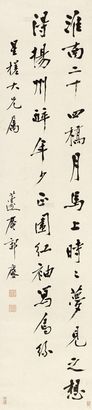 淮南二十四橋月馬上時時夢見之想
得揚州醉年少正圍紅袖寫烏絲
星槎大兄屬
蘧盦郭麐